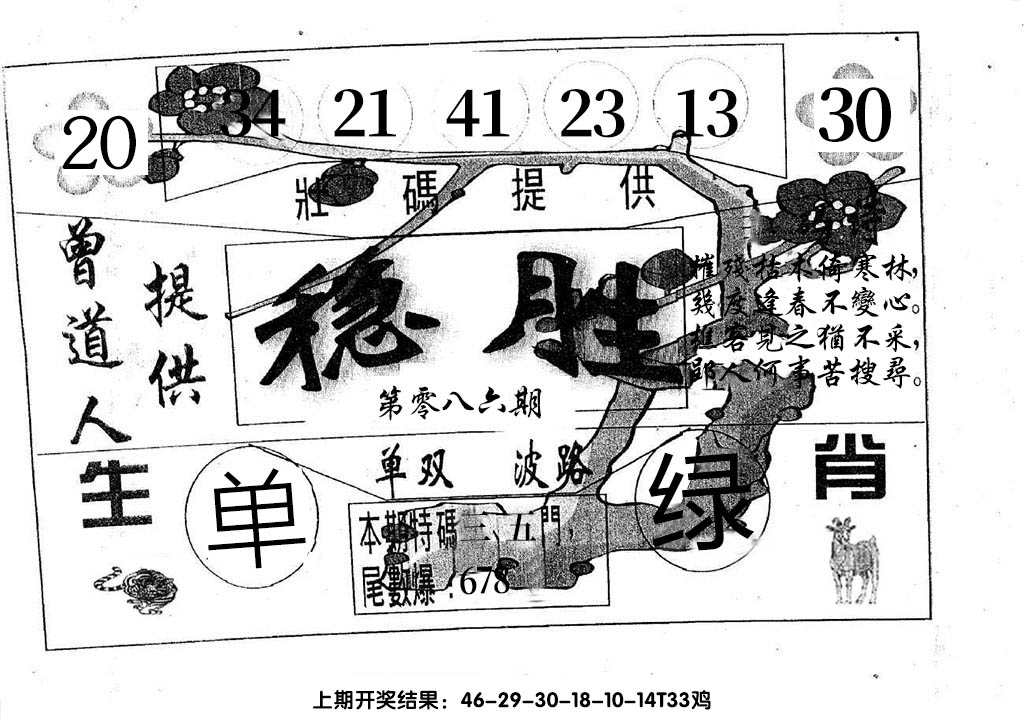 20 34 21 41 23 13 30
壯碼提供
特
曾道人
提供
稳胜
第零八六期
摧殘枯木倚寒林,
幾度逢春不變心。
樵客見之猶不采,
郢人何事苦搜尋。
单双 波路
生肖
单
绿
本期特碼三、五門,
尾數爆:678
上期开奖结果:46-29-30-18-10-14T33鸡